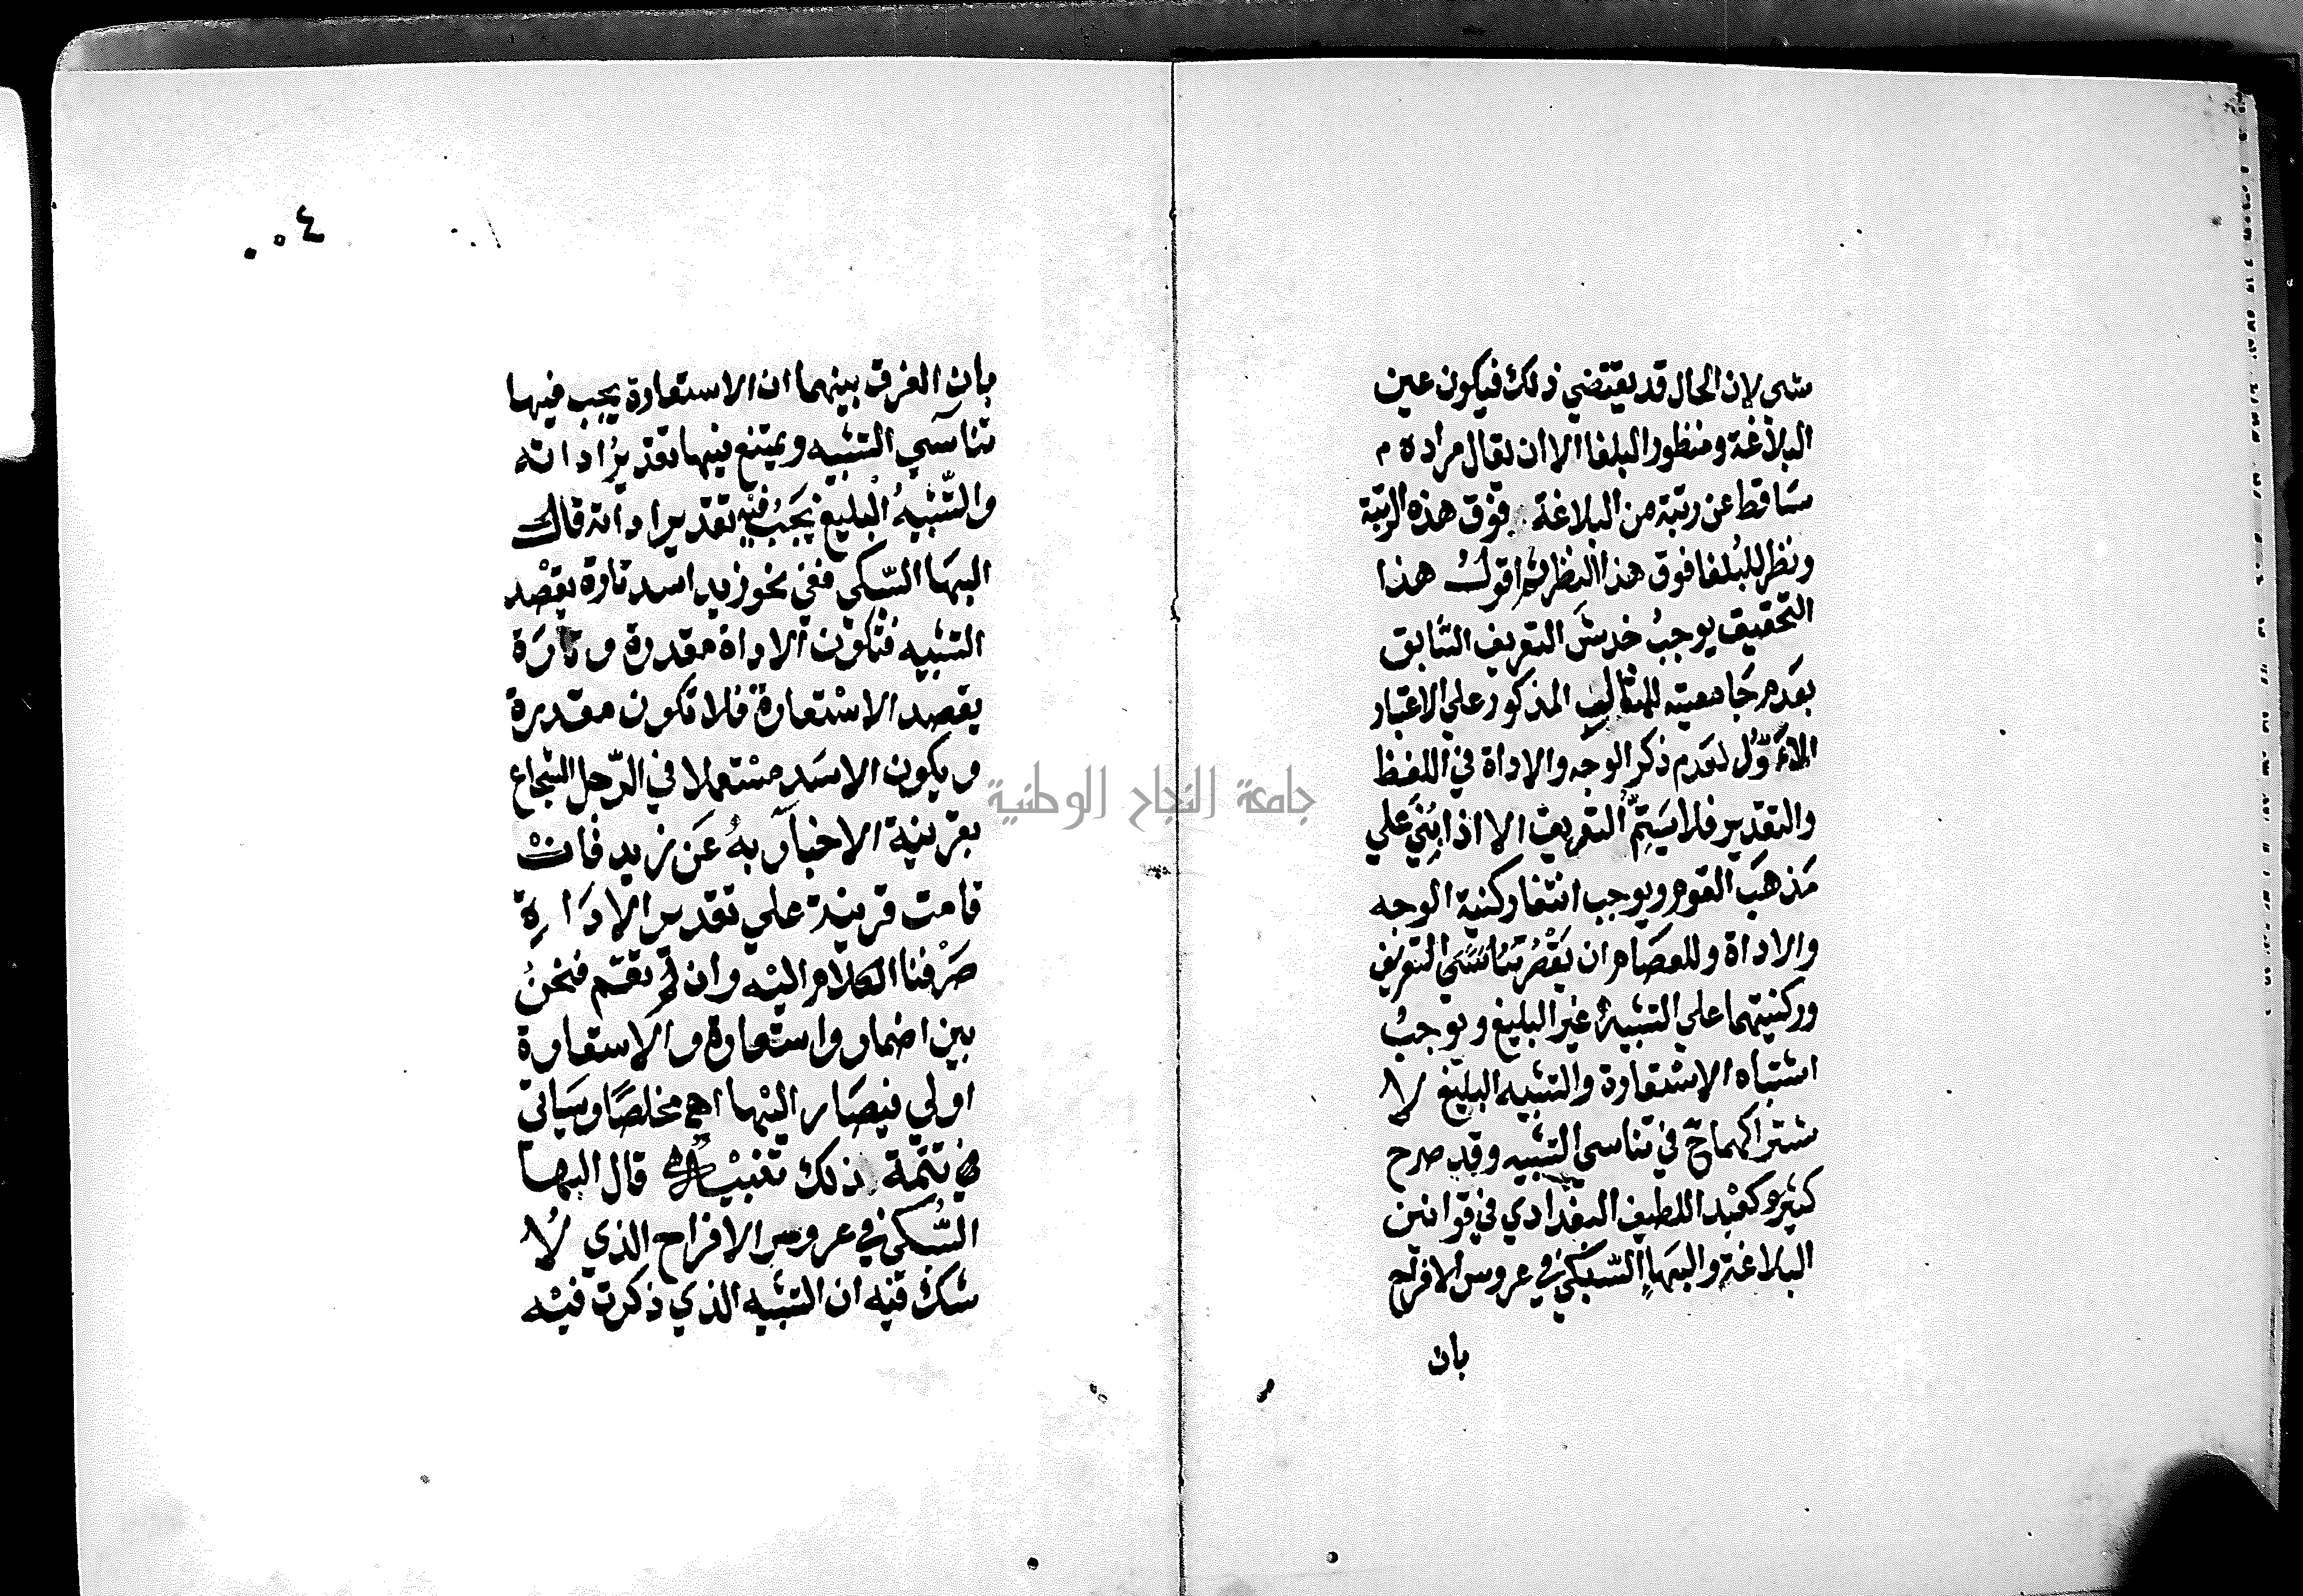 شى لان الحال قد يقتضي ذلك فيكون عين
البلاغة ومنظور البلغا الا ان يقال مراده م
ساقط عن رتبة من البلاغة فوق هذه الرتبة
ونظر للبلغا فوق هذا النظر ثم اقول هذا
التحقيق يوجب خدش التعريف السابق
بعدم جامعيته للمثال المذكور علي الاعتبار
الاول لعدم ذكر الوجه والاداة في اللفظ
والتقدير فلا يتم التعريف الا اذا بني علي
مذهب القوم ويوجب انتفا ركنية الوجه
والاداة وللعصام ان يقصر تناسى التعريف
وركنيتهما علي التشبيه غير البليغ ويوجب
اشتباه الاستعارة والتشبيه البليغ لا
شتراكهماح في تناسي التشبيه وقد صرح
كثير كعبد اللطيف البغدادي في قوانين
البلاغة والبها السبكي في عروس الافراح
بان
٠٠٤
بان الفرق بينهما ان الاستعارة يجب فيها
تناسي التشبيه ويمتنع فيها تقدير اداته
والتشبيه البليغ يجب فيه تقدير اداته قال
البها السبكي ففي نحو زيد اسد تارة يقصد
التشبيه فتكون الاداة مقدرة وتارة
يقصد الاستعارة فلا تكون مقدرة
ويكون الاسد مستعملا في الرجل الشجاع
بقرينة الاخبار به عن زيد فان
قامت قرينة علي تقدير الاداة
صرفنا الكلام اليه وان لم تقم فنحن
بين اضمار واستعارة والاستعارة
اولي فيصار اليها اهم مخلصا وسياتي
في تتمة ذلك تنبيه قال البها
السبكي في عروس الافراح الذي لا
شك فيه ان التشبيه الذي ذكرت فيه
جامعة النجاح الوطنية